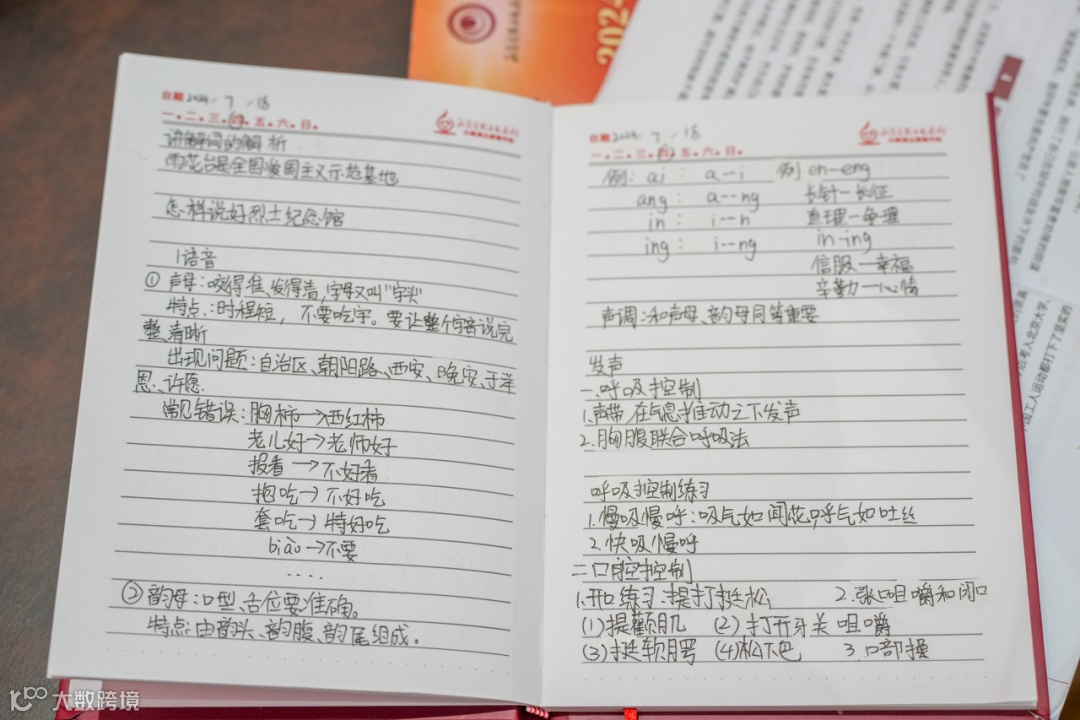 日期 2024 / 7 / 18
一.二.三.四.五.六.日.
讲解词的解析
雨花台是全国爱国主义示范基地
怎样说好烈士纪念馆
1语音
① 声母:咬得准、发得清,字母又叫"字头"
特点:时程短, 不要吃字。要让整个字音说完
整、清晰
出现问题:自治区、朝阳路、西安、晚安、于洋
恩、许愿.
常见错误:胸柿→西红柿
老儿好→老师好
报看→不好看
抱吃→不好吃
套吃→特好吃
biào→不要
....
② 韵母:口型、舌位要准确。
特点:由韵头、韵腹、韵尾组成.
日期 2024 / 7 / 18
一.二.三.四.五.六.日.
例: ai : a--i 例 en-eng
ang : a--ng 长针-长征
in : i--n 真理-争理
ing : i--ng in-ing
信服-幸福
辛勤-心情
声调:和声母、韵母同等重要
发声
一.呼吸控制
1.声带在气息推动之下发声
2.胸腹联合呼吸法
呼吸控制练习
1.慢吸慢呼:吸气如闻花,呼气如吐丝
2.快吸慢呼
二.口腔控制
1.开口练习:提打挺松 2.张口咀嚼和闭口
(1)提颧肌 (2)打开牙关 咀嚼
(3)挺软腭 (4)松下巴 3.口部操
202
后考入北京大学,
国工人运动都打下了坚实的
大数跨境